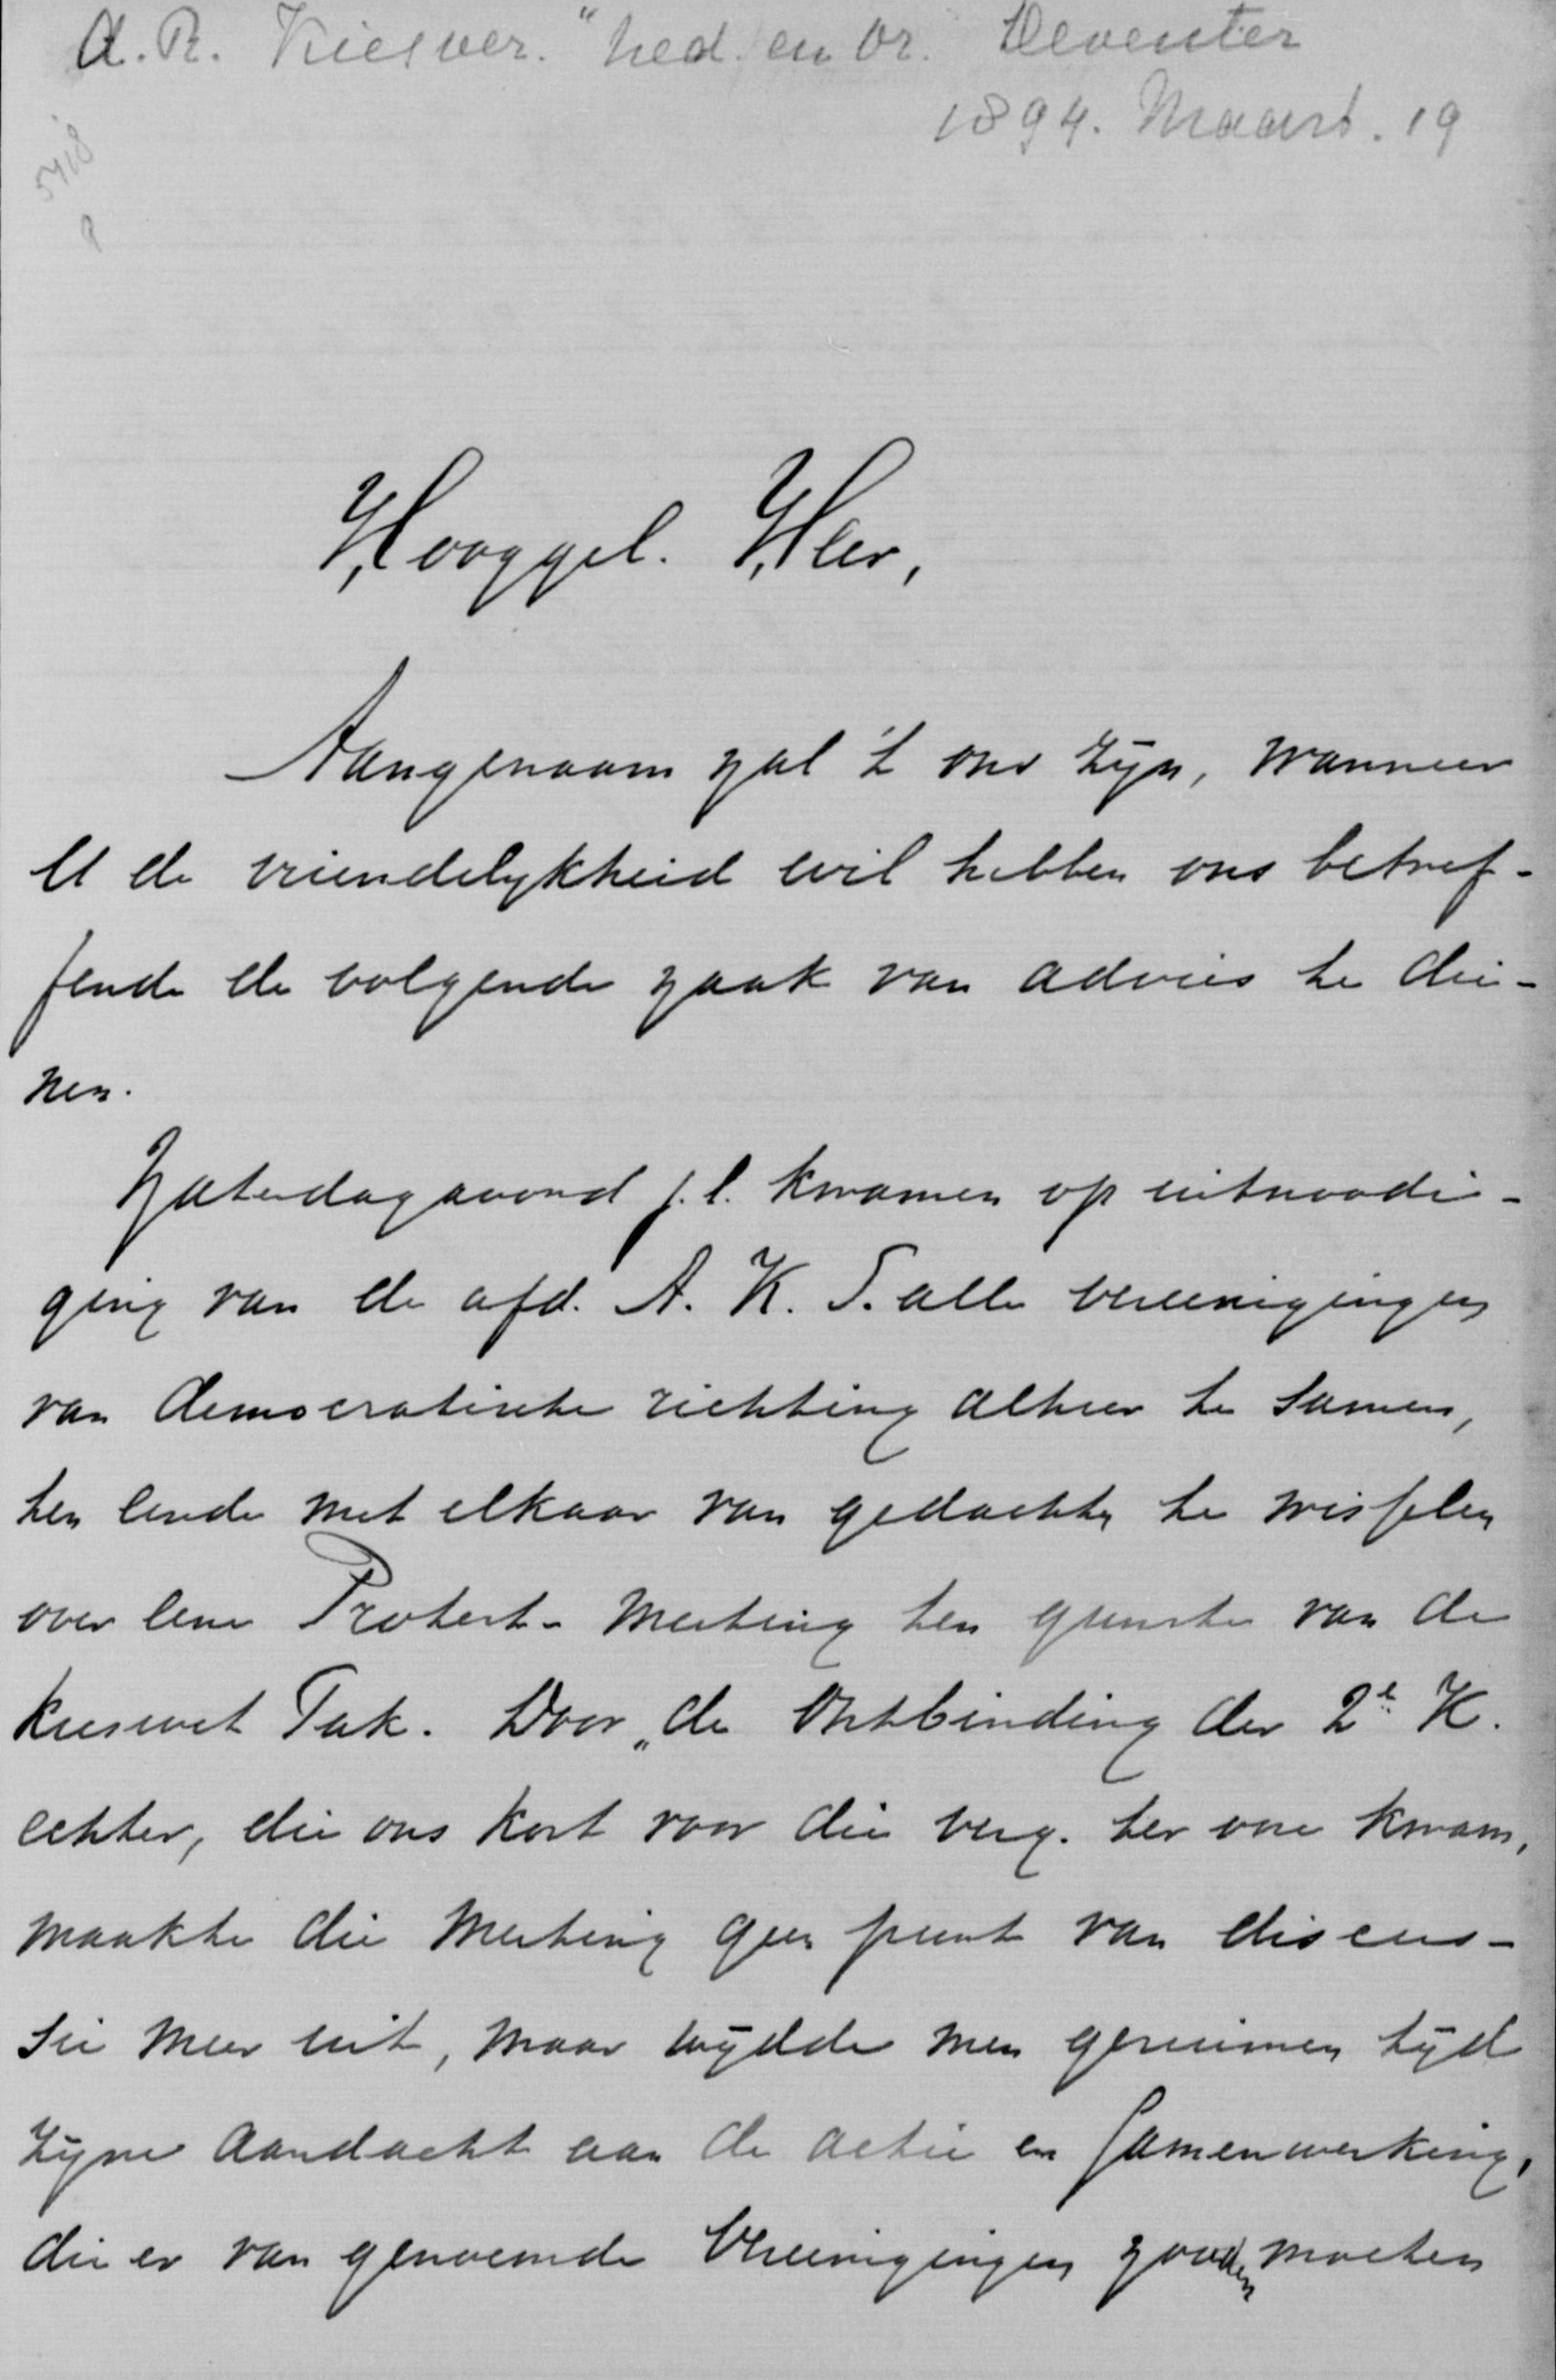 A.R. Kiesver. "Ned. en Or. Deventer
1894. Maart. 19
5418
Hooggel. Heer,
Aangenaam zal 't ons zijn, wanneer
U de vriendelykheid wil hebben ons betref-
fende de volgende zaak van advies te die-
nen.
Zaterdagavond j.l. kwamen op uitnoodi-
ging van de afd. A. K. S. alle vereenigingen
van democratische richting alhier te samen,
ten einde met elkaar van gedachten te wisselen
over eene Protest-Meeting ten gunste van de
kieswet Tak. Door „de Ontbinding der 2e K.
echter, die ons kort voor die verg. ter oore kwam,
maakte die Meeting geen punt van discus-
sie meer uit, maar wijdde men geruimen tijd
zijne aandacht aan de actie en samenwerking,
die er van genoemde Vereenigingen zouden moeten